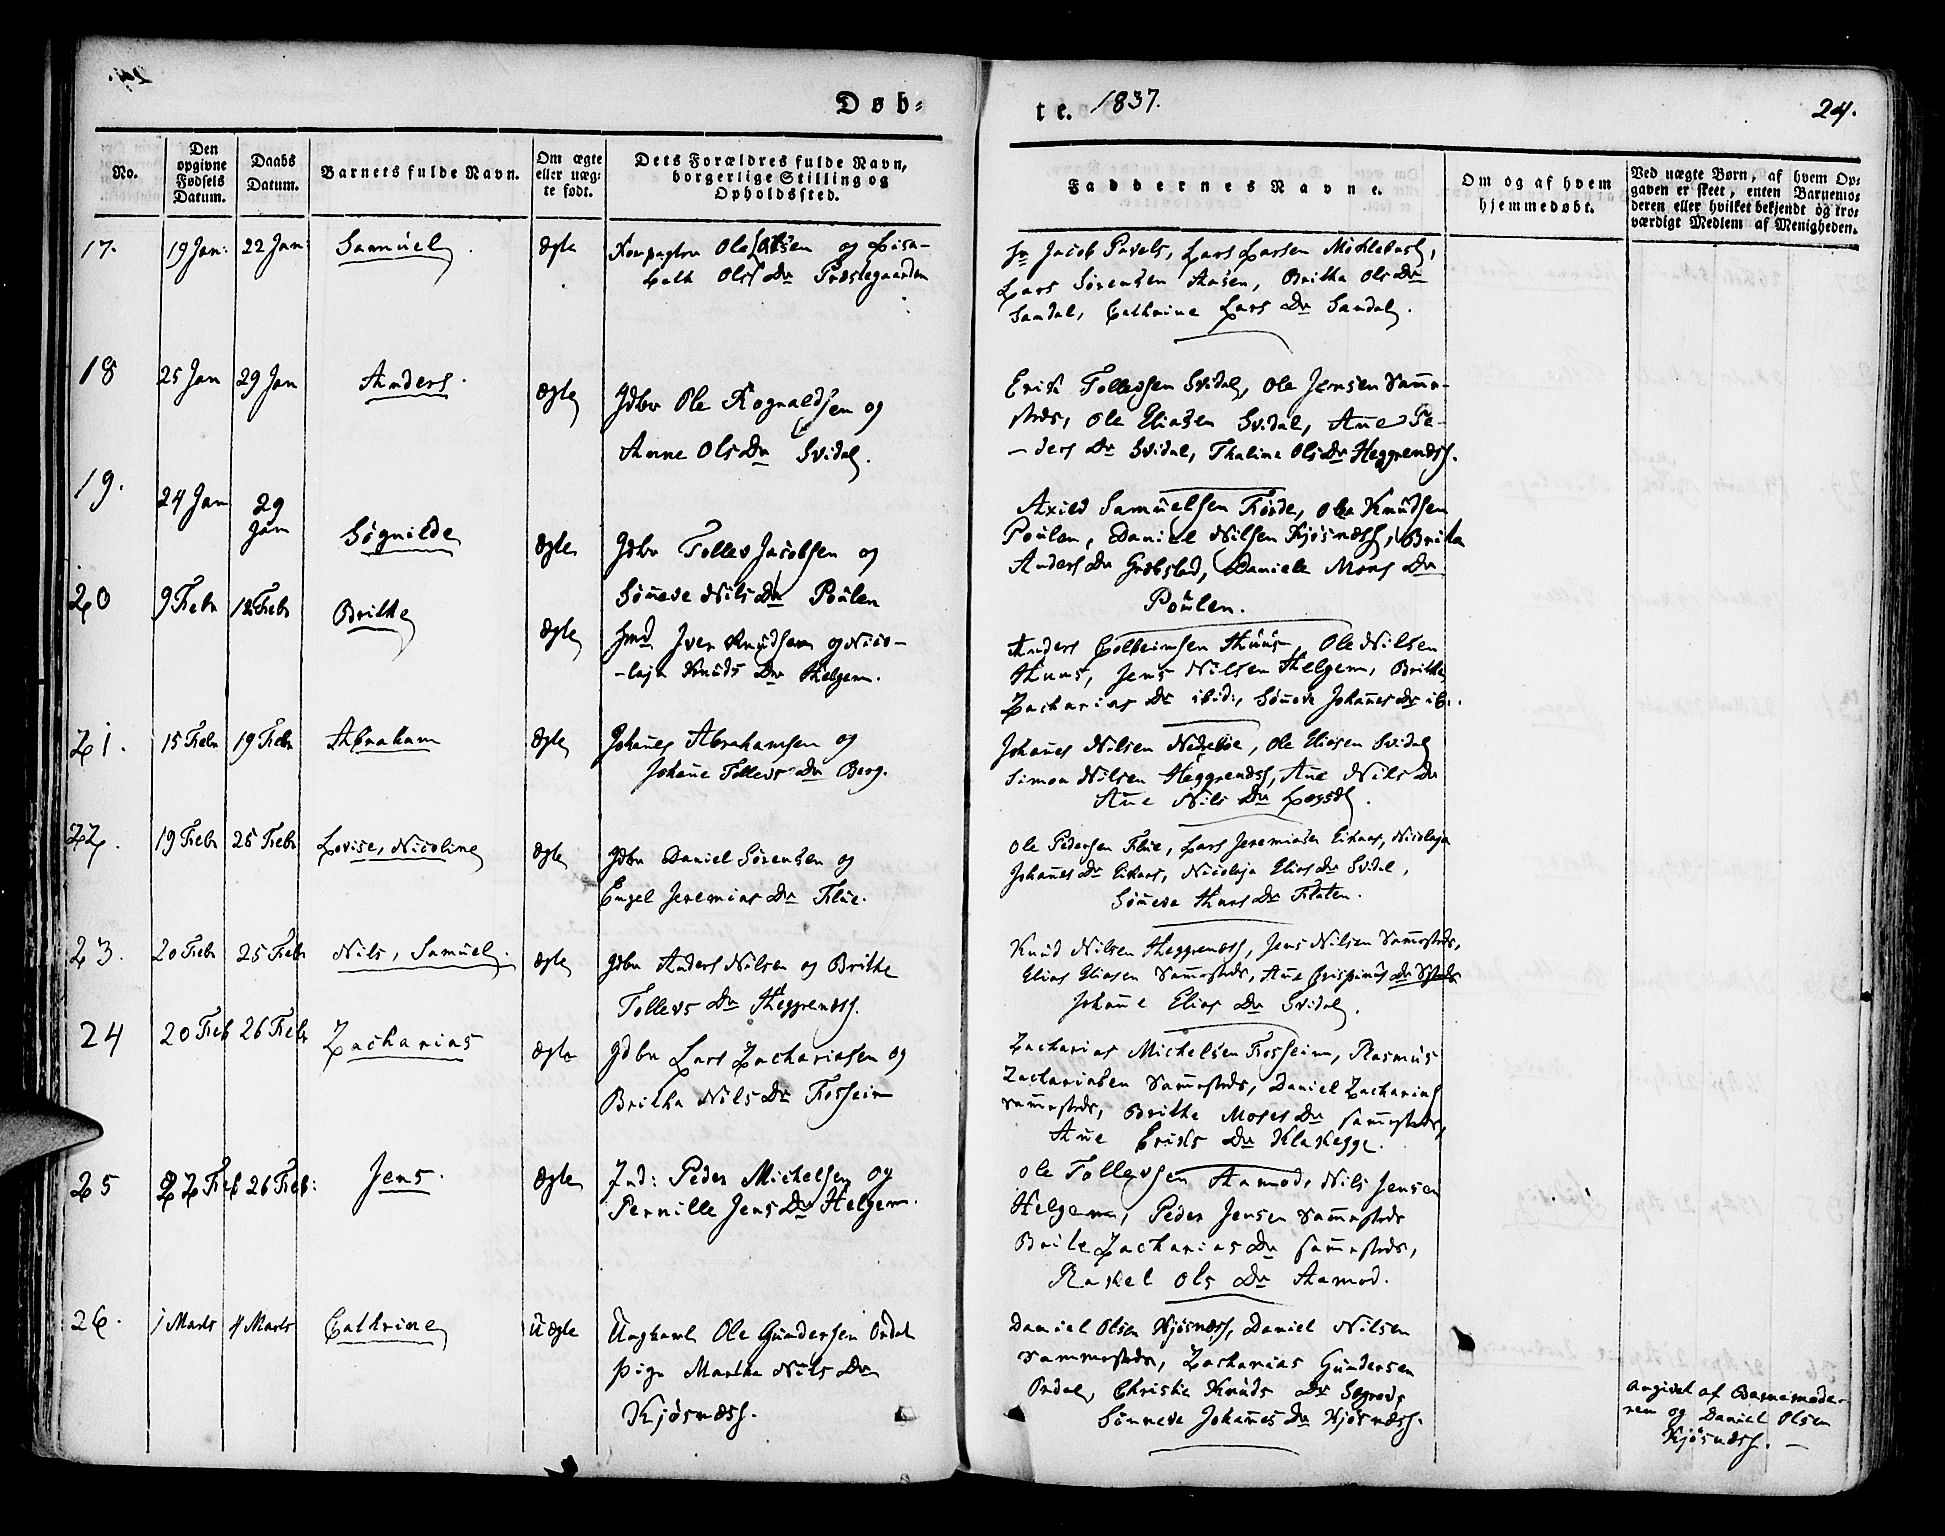 Døb-
te. 1837.
24.
No.
Den opgivne Fødsels Datum.
Daabs Datum.
Barnets fulde Navn.
Om ægte eller uægte født.
Dets Forældres fulde Navn, borgerlige Stilling og Opholdssted.
Faddernes Navne.
Om og af hvem hjemmedøbt.
Ved uægte Børn, af hvem Opgaven er skeet, enten Barnemoderen eller hvilket bekjendt og troværdigt Medlem af Menigheden.
17. 19 Jan: 22 Jan: Samuel. Ægte
Ole Olsen og Lisa-
beth Ols Dr Præstegaarden
Sr Jacob Pavels, Lars Larsen Møklebust,
Lars Sørensen Aasen, Britha Ols Dr
Sandal, Cathrine Lars Dr Sandal.
18 25 Jan 29 Jan Anders. Ægte
Gdbr Ole Rognaldsen og
Anne Ols Dr Svidal.
Erik Tollevsen Svidal, Ole Jensen Samme-
steds, Ole Eliasen Svidal, Ane Pe-
-ders Dr Svidal, Thaline Ols Dr Heggenæss.
19. 24 Jan 29 Jan Søgnilde Ægte
Gdbr Tollev Jacobsen og
Søneve Nils Dr Poulen
Axild Samuelsen Førde, Ole Knudsen
Poulen, Daniel Nilsen Kjøsnæss, Britha
Anders Dr Grebstad, Daniele Mons Dr
Poulen.
20 9 Febr 12 Febr Brithe Ægte
Hmd Iver Knudsen og Nico-
-laja Knuds Dr Helgem.
Anders Colbeinsen Huus, Ole Nilsen
Huus, Jens Nilsen Helgem, Brithe
Zacharias Dr ibid:, Søneve Johanes Dr ib:.
21. 15 Febr 19 Febr Abraham Ægte
Johanes Abrahamsen og
Johane Tollevs Dr Berg.
Johanes Nilsen Nedrebøe, Ole Eliasen Svidal
Simon Nilsen Heggenæss, Ane Nils Dr
Ane Nils Dr
22. 19 Febr 25 Febr Lovise, Nicoline Ægte
Gdbr Daniel Sørensen og
Engel Jeremias Dr Flue.
Ole Pedersen Flue, Lars Jeremiasen Eikaas, Nicolaja
Johanes Dr Eikaas, Nicolaja Elias Dr Svidal,
Søneve Hans Dr Flaten.
23. 20 Febr 25 Febr Nils, Samuel. Ægte
Gdbr Anders Nilsen og Brithe
Tollevs Dr Heggenæss.
Knud Nilsen Heggenæss, Jens Nilsen Samesteds,
Elias Eliasen Samesteds, Ane Crispinus Dr
Johane Elias Dr Svidal.
24 20 Feb 26 Febr Zacharias Ægte
Gdbr Lars Zachariasen og
Britha Nils Dr Fosseim
Zacharias Michelsen Fosseim, Rasmus
Zachariasen Samesteds, Daniel Zacharias
samesteds, Brithe Moses Dr samesteds,
Ane Eriks Dr Klakegge.
25 22 Feb 26 Feb: Jens. Ægte
Ind: Peder Michelsen og
Pernille Jens Dr Helgem.
Ole Tollevsen Aamod, Nils Jensen
Helgem, Peder Jensen samesteds
Brite Zacharias Dr samesteds,
Rakel Ols Dr Aamod.
26. 1 Marts 4 Marts Cathrine Uægte
Ungkarl Ole Gundersen Ordal
Pige Marthe Nils Dr
Kjøsnæss.
Daniel Olsen Kjøsnæss, Daniel Nilsen
sammesteds, Zacharias Gundersen
Ordal, Christie Knuds Dr
Sønneve Johanes Dr Kjøsnæss.
Angivet af Barnemode-
ren og Daniel Olsen
Kjøsnæss. —